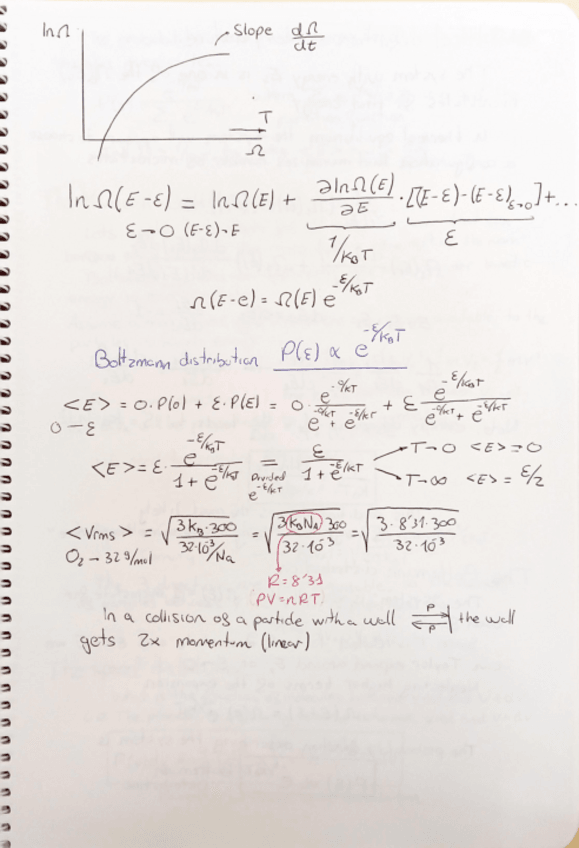 lnΩ
Slope dΩ/dt
T
Ω
lnΩ(E-ε) = lnΩ(E) + ∂lnΩ(E)/∂E · [(E-ε)-(E-ε)ε→0]+...
ε→0 (E-ε)→E
1/KBT
ε
Ω(E-e) = Ω(E) e^-ε/KBT
Boltzmann distribution P(ε) ∝ e^-ε/KBT
<E> = 0·P(0) + ε·P(E) = 0· e^-0/KT / e^-0/KT + e^-ε/KT + ε e^-ε/KBT / e^-0/KT + e^-ε/KT
0 – ε
<E> = ε· e^-ε/KBT / 1 + e^-ε/KT = ε / 1 + e^ε/KT
Divided e^-ε/KT
T→0 <E>→0
T→∞ <E> = ε/2
<Vrms> = √3KB·300 / 32·10^-3/Na = √3KBNA 300 / 32·10^-3 = √3·8'31·300 / 32·10^-3
O2→32g/mol
R=8'31
PV=nRT)
In a collision of a particle with a wall P P the wall
gets 2x momentum (linear)